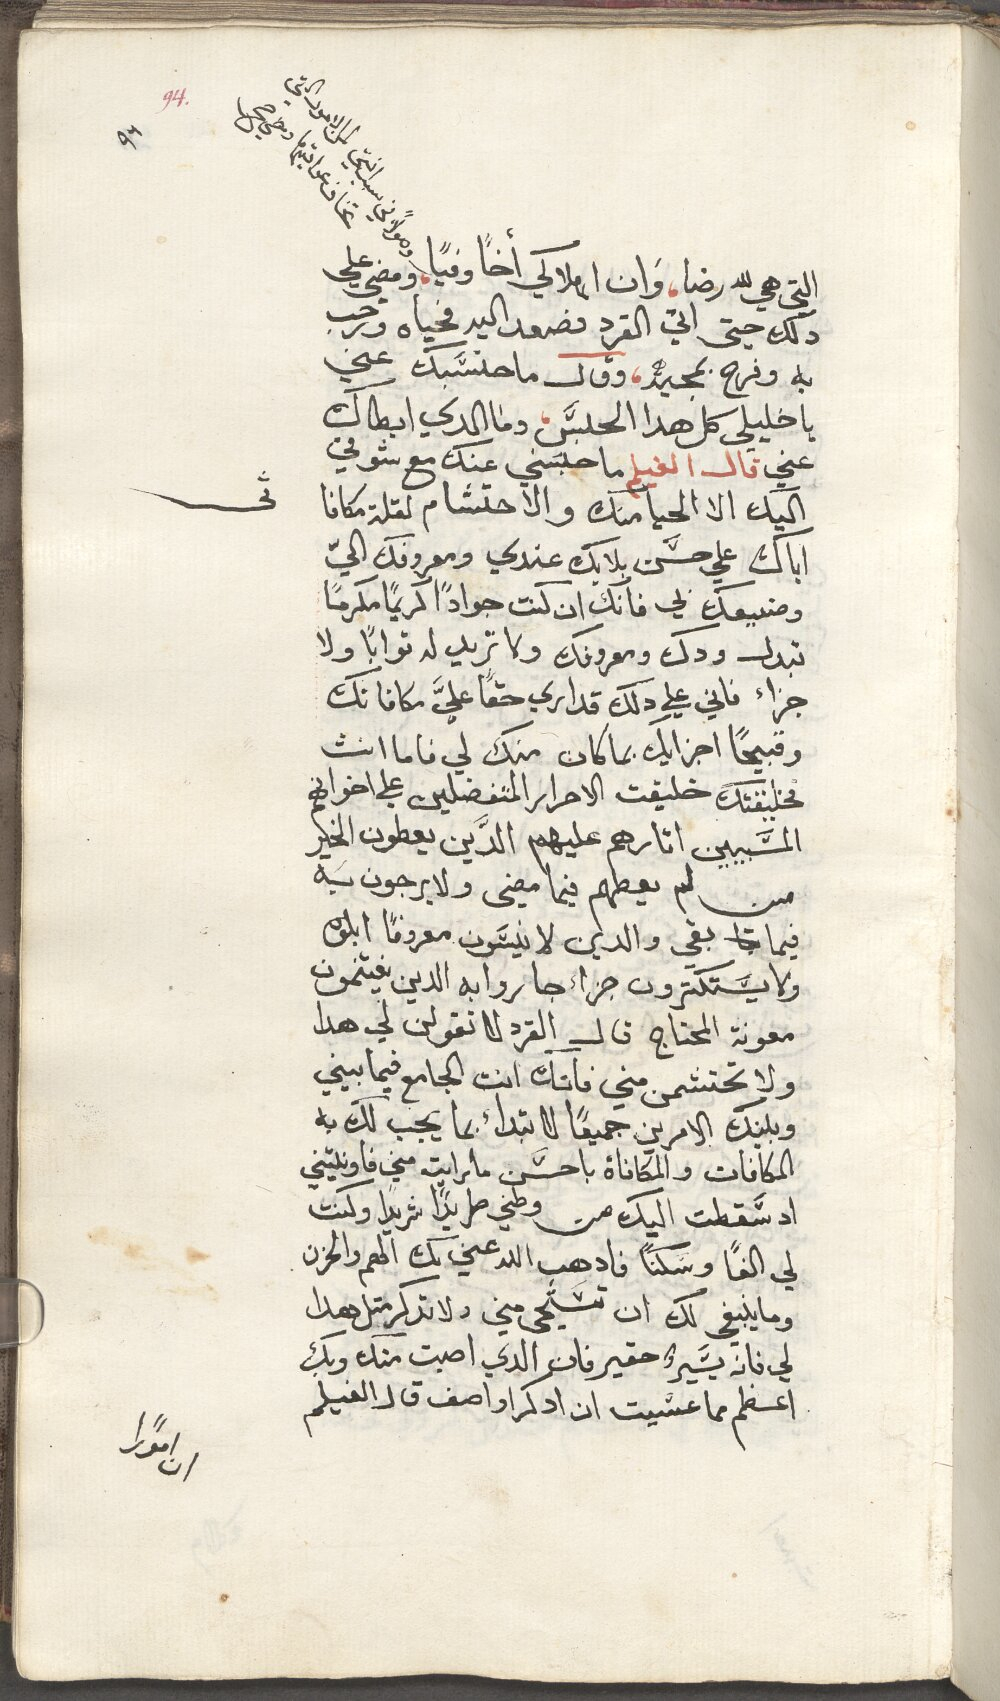 94.
٩٤
التي هي لله رضا، وَان اهلاكي أخًا وفيًا، ومضي علي
دلك حيتى اتيّ القرد فصعد اليه فحياه ورحب
به وفرح بمجيه، وقال ما حتسَّبك عني
يا خليلي كل هدا الحلبسَّ، وما الدي ابطاك
عني قال الغيلم ما حبسَني عنك مع شوقي
اليك الا الحيا منك والاحتشام لقلة مكافا
اياك علي حسَّن بلايك عندي ومعروفك اليّ
وصنيعك لي فانك ان كنت جوادًا كريمًا مكرمًا
تبدل ودك ومعروفك ولا تريد له توابًا ولا
جزاء فاني علي دلك قد اري حقًا عليَّ مكافاتك
وقبيحًا اجزايك بما كان منك لي فاما انت
فخليقتك خليقت الاحرار المتفضلين علي اخوانهم
المسَّبيبين اتارهم عليهم الدَّين يعطون الخير
من لم يعطهم فيما مضى ولا يرجون يسَه
فيما بقي والدين لا ينسَّون معروفًا ابلوه
ولا يسَّتكترون جزاء جاروا به الدين يغيتمون
معونة المحتاج قال القرد لا تقولن لي هدا
ولا تحتشمن مني فانك انت الجامع فيما بيني
وبينك الامرين جميعًا الابتداء بما يجب لك به
المكافات والمكافاة باحسَّن ما رايت مني فاونليتني
اد سَّقطت اليك من وطني طريدًا شريدًا وكنت
لي الفًا وسَكنًا فادهب الله عني بك الهم والحزن
وما ينبغي لك ان تسَّتحى مني ولا تدكر متل هدا
لي فانه يسَّير حقير فان الدي اصبت منك وبك
اعظم مما عسَّيت ان ادكر او اصف قال الغيلم
ان امورًا